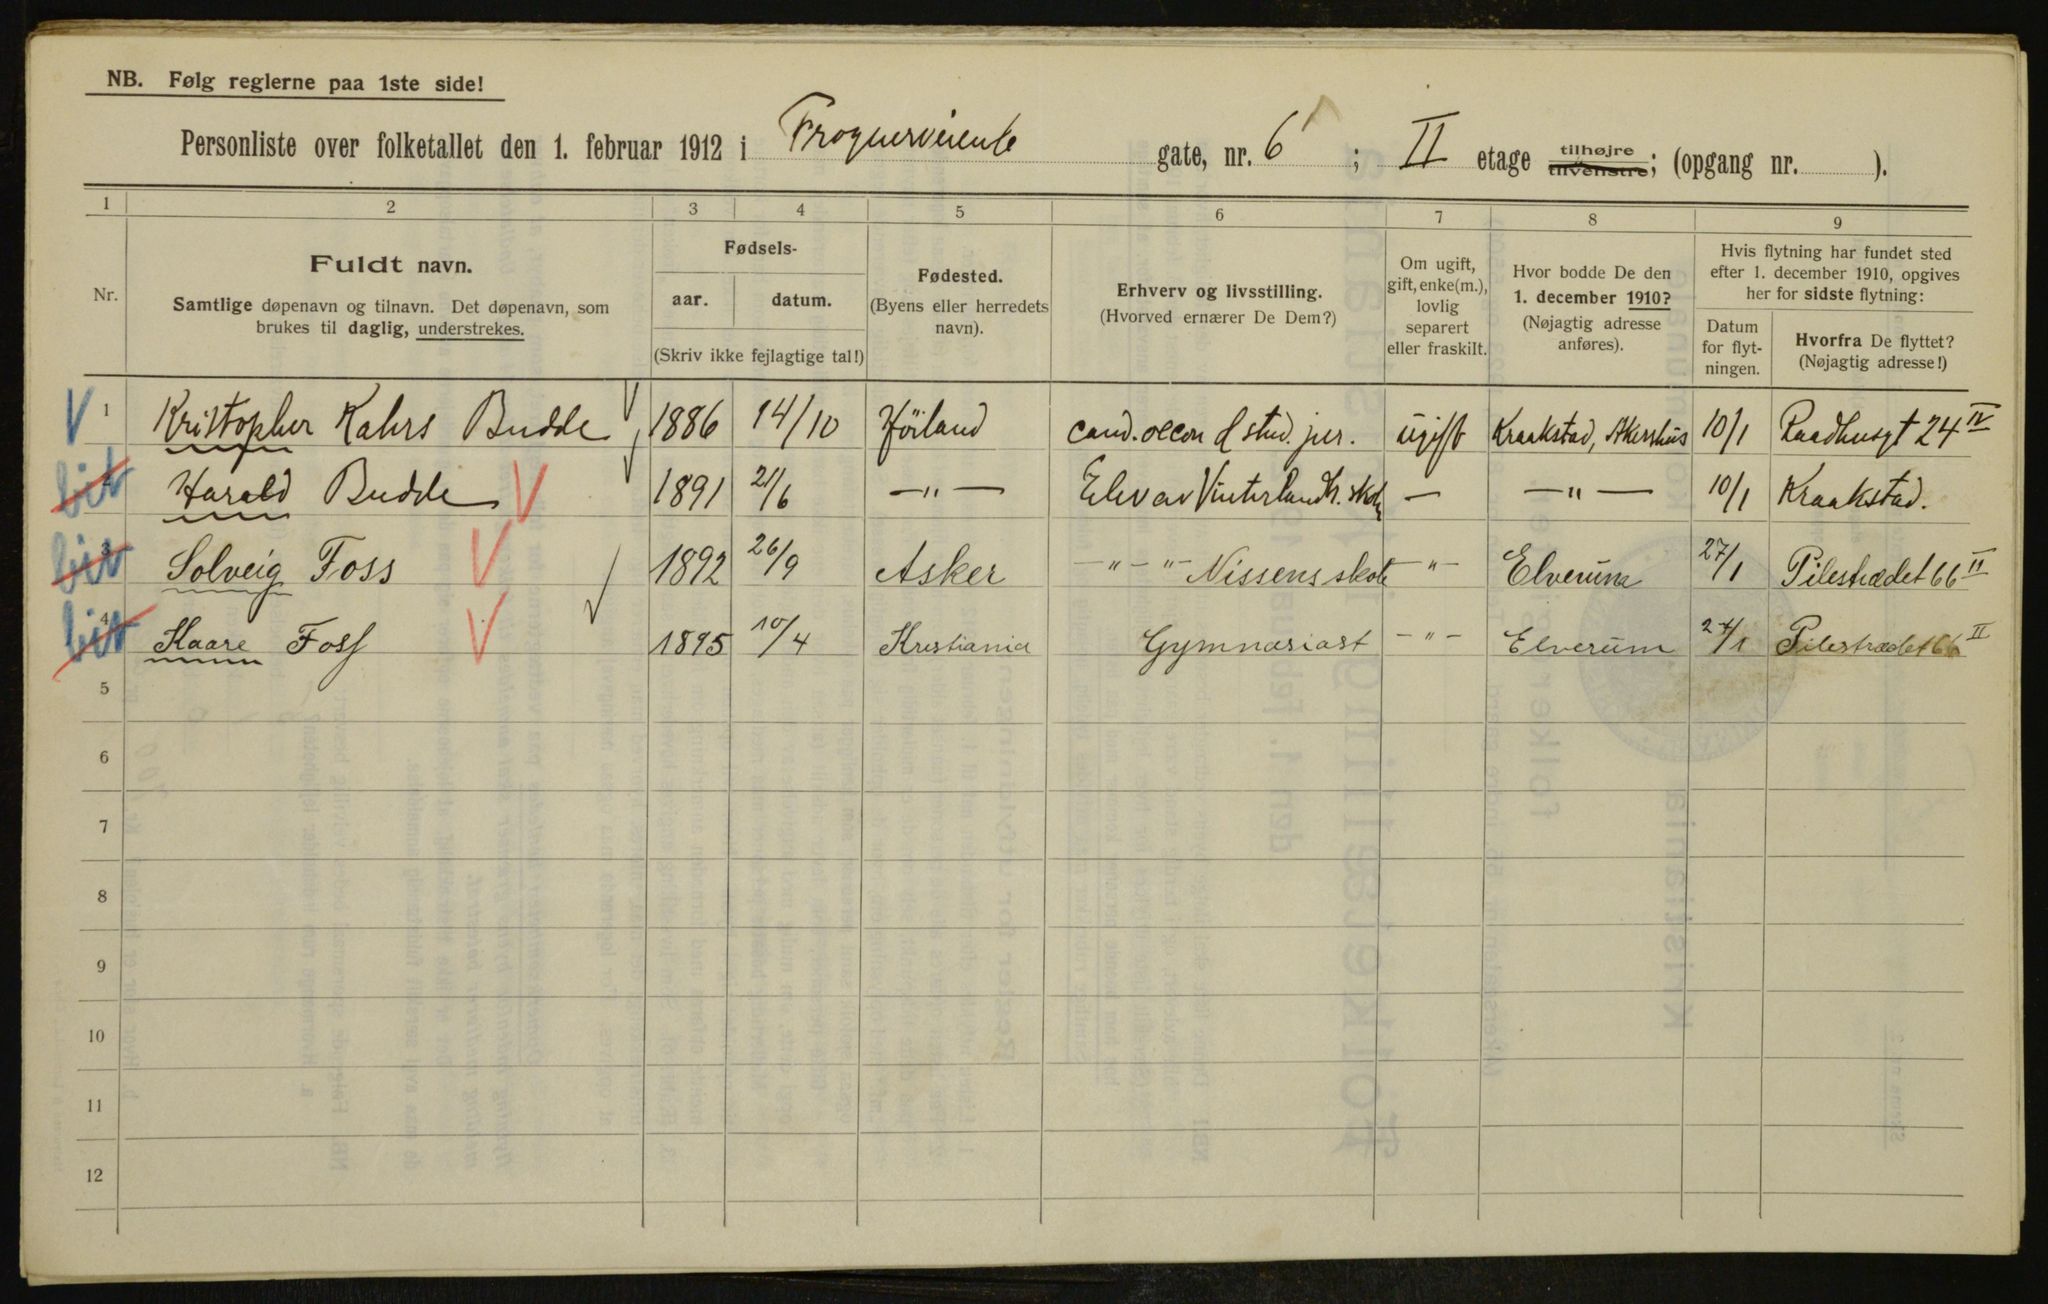 NB. Følg reglerne paa 1ste side!
Personliste over folketallet den 1. februar 1912 i Frognerveiente gate, nr. 6 ; II etage tilhøjre tilvenstre; (opgang nr. ).
1 2 3 4 5 6 7 8 9
Nr.
Fuldt navn.
Samtlige døpenavn og tilnavn. Det døpenavn, som
brukes til daglig, understrekes.
Fødsels-
aar. datum.
(Skriv ikke fejlagtige tal!)
Fødested.
(Byens eller herredets
navn).
Erhverv og livsstilling.
(Hvorved ernærer De Dem?)
Om ugift,
gift, enke(m.),
lovlig
separert
eller fraskilt.
Hvor bodde De den
1. december 1910?
(Nøjagtig adresse
anføres).
Hvis flytning har fundet sted
efter 1. december 1910, opgives
her for sidste flytning:
Datum
for flyt-
ningen.
Hvorfra De flyttet?
(Nøjagtig adresse!)
1 Kristopher Kahrs Budde 1886 14/10 Høiland cand. oecon & stud. jur. ugift Kraakstad, Akershus 10/1 Raadhusgt 24 IV
2 Harald Budde 1891 21/6 —"— Elev av Vinterlandbr. skole — —"— 10/1 Kraakstad.
3 Solveig Foss 1892 26/9 Asker —"—"— Nissens skole —"— Elverum 27/1 Pilestrædet 66 II
4 Kaare Foss 1895 10/4 Kristiania Gymnasiast —"— Elverum 27/1 Pilestrædet 66 II
5
6
7
8
9
10
11
12